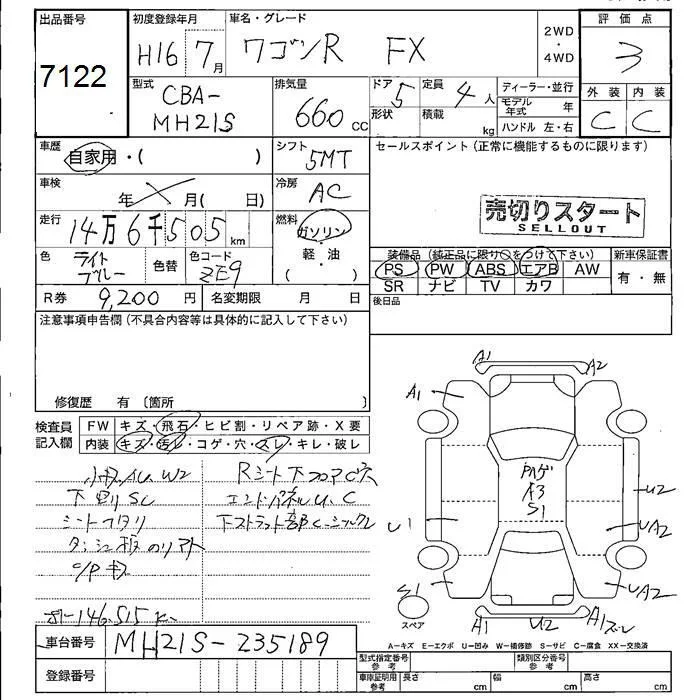 出品番号
7122
初度登録年月
H16 7月
車名・グレード
ワゴンR FX
2WD
・
4WD
評価点
3
型式
CBA-
MH21S
排気量
660 cc
ドア 5
形状
定員 4人
積載 kg
ディーラー・並行
モデル年式 年
ハンドル 左・右
外装 内装
C C
車歴
自家用・( )
シフト
5MT
セールスポイント(正常に機能するものに限ります)
車検
年 月( 日)
冷房
AC
売切りスタート
SELLOUT
走行
14万6千505km
燃料
ガソリン
軽・油
( )
色
ライト
ブルー
色替
色コード
ZE9
装備品(純正品に限り○をつけて下さい)
PS PW ABS エアB AW
SR ナビ TV カワ
新車保証書
有・無
R券 9,200円
名変期限 月 日
後日品
注意事項申告欄(不具合内容等は具体的に記入して下さい)
修復歴 有〔箇所 〕
検査員
記入欄
FW キズ・飛石・ヒビ割・リペア跡・X要
内装 キズ・汚レ・コゲ・穴・スレ・キレ・破レ
小キズAU W2
下廻りSC
シートヘタリ
Rシート下フロアC穴
エンドパネルU、C
A1 A2
A1
A3
S1
U2
U1
UA2
UA2
S1
スペア
A1 U2 A1ズレ
A―キズ E―エクボ U―凹み W―補修跡 S―サビ C―腐食 XX―交換済
車台番号 MH21S-235189
登録番号
型式指定番号
参考
類別区分番号
参考
車庫証明用
参考
長さ cm
幅 cm
高さ cm